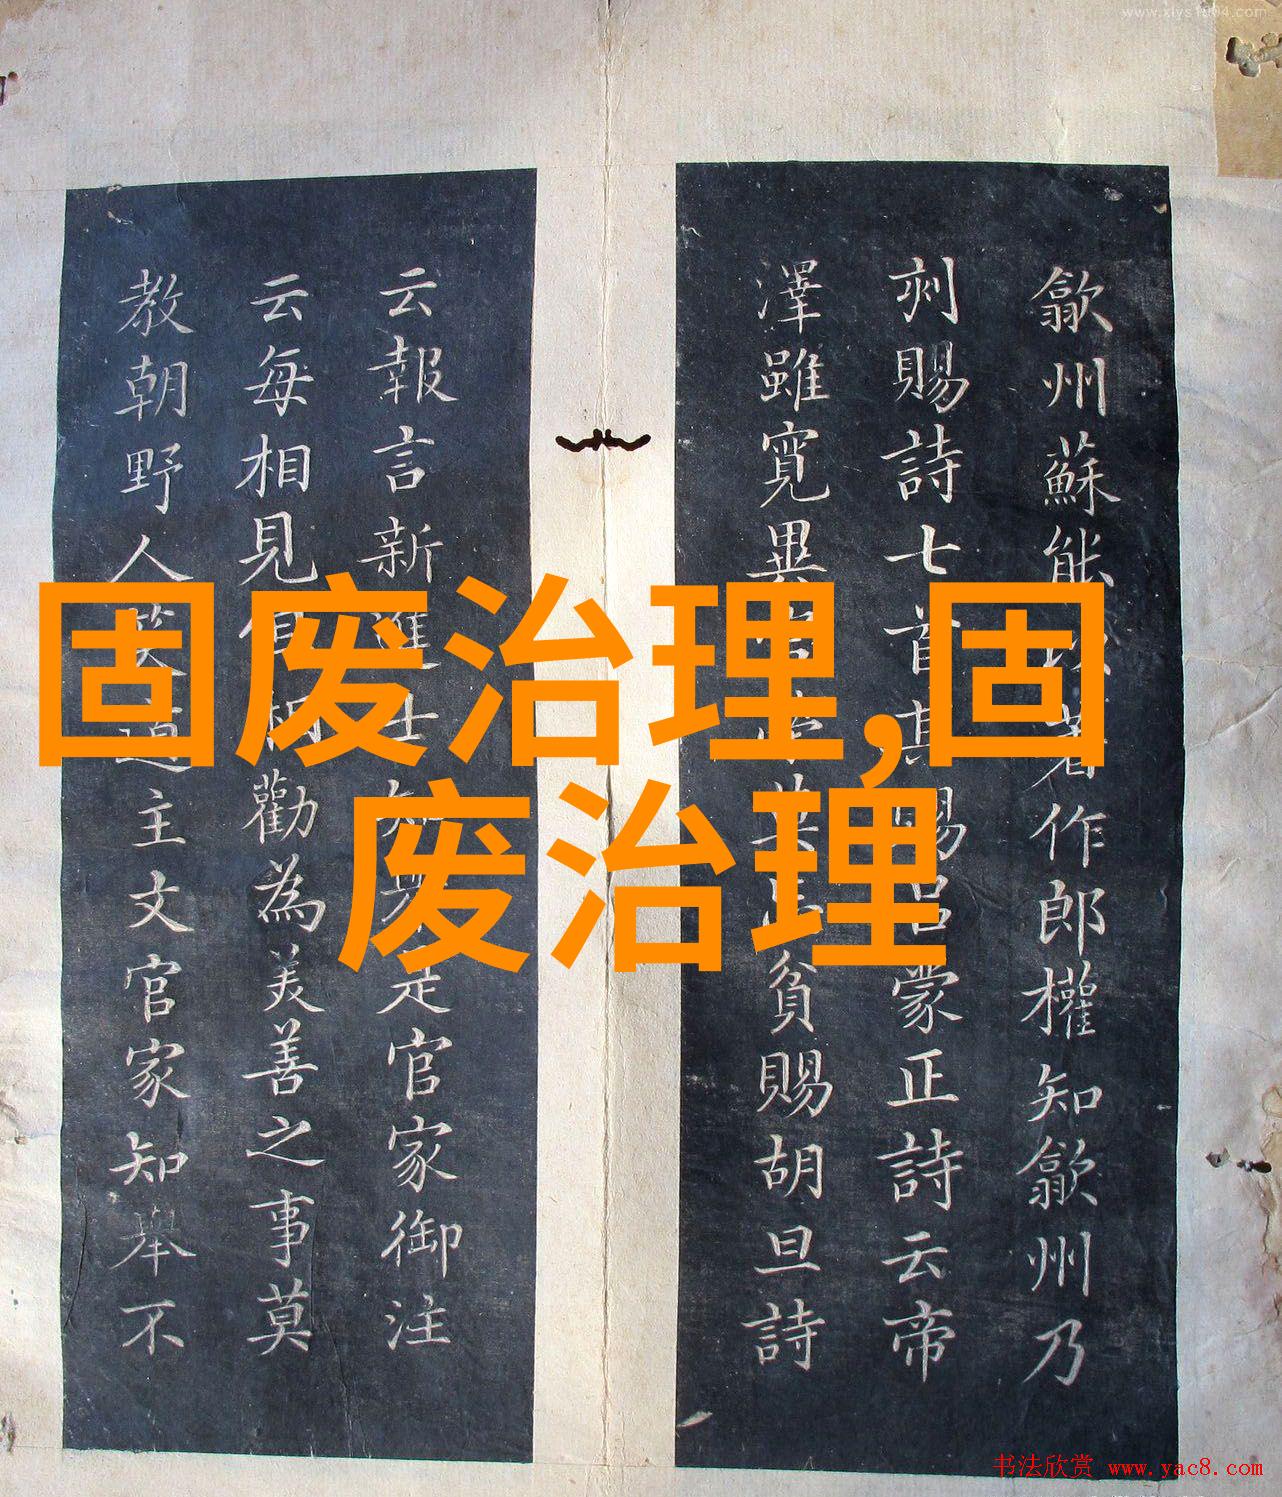 固废治理,固
废治理
歙州蘇能著作郎權知歙州乃
刾賜詩七首其賜呂蒙正詩云帝
澤雖寬異貧賜胡旦詩
云報言新進士知是官家御注
云每相見相勸為美善之事莫
教朝野人笑道主文官家知舉不
书法欣赏 www.yac8.com